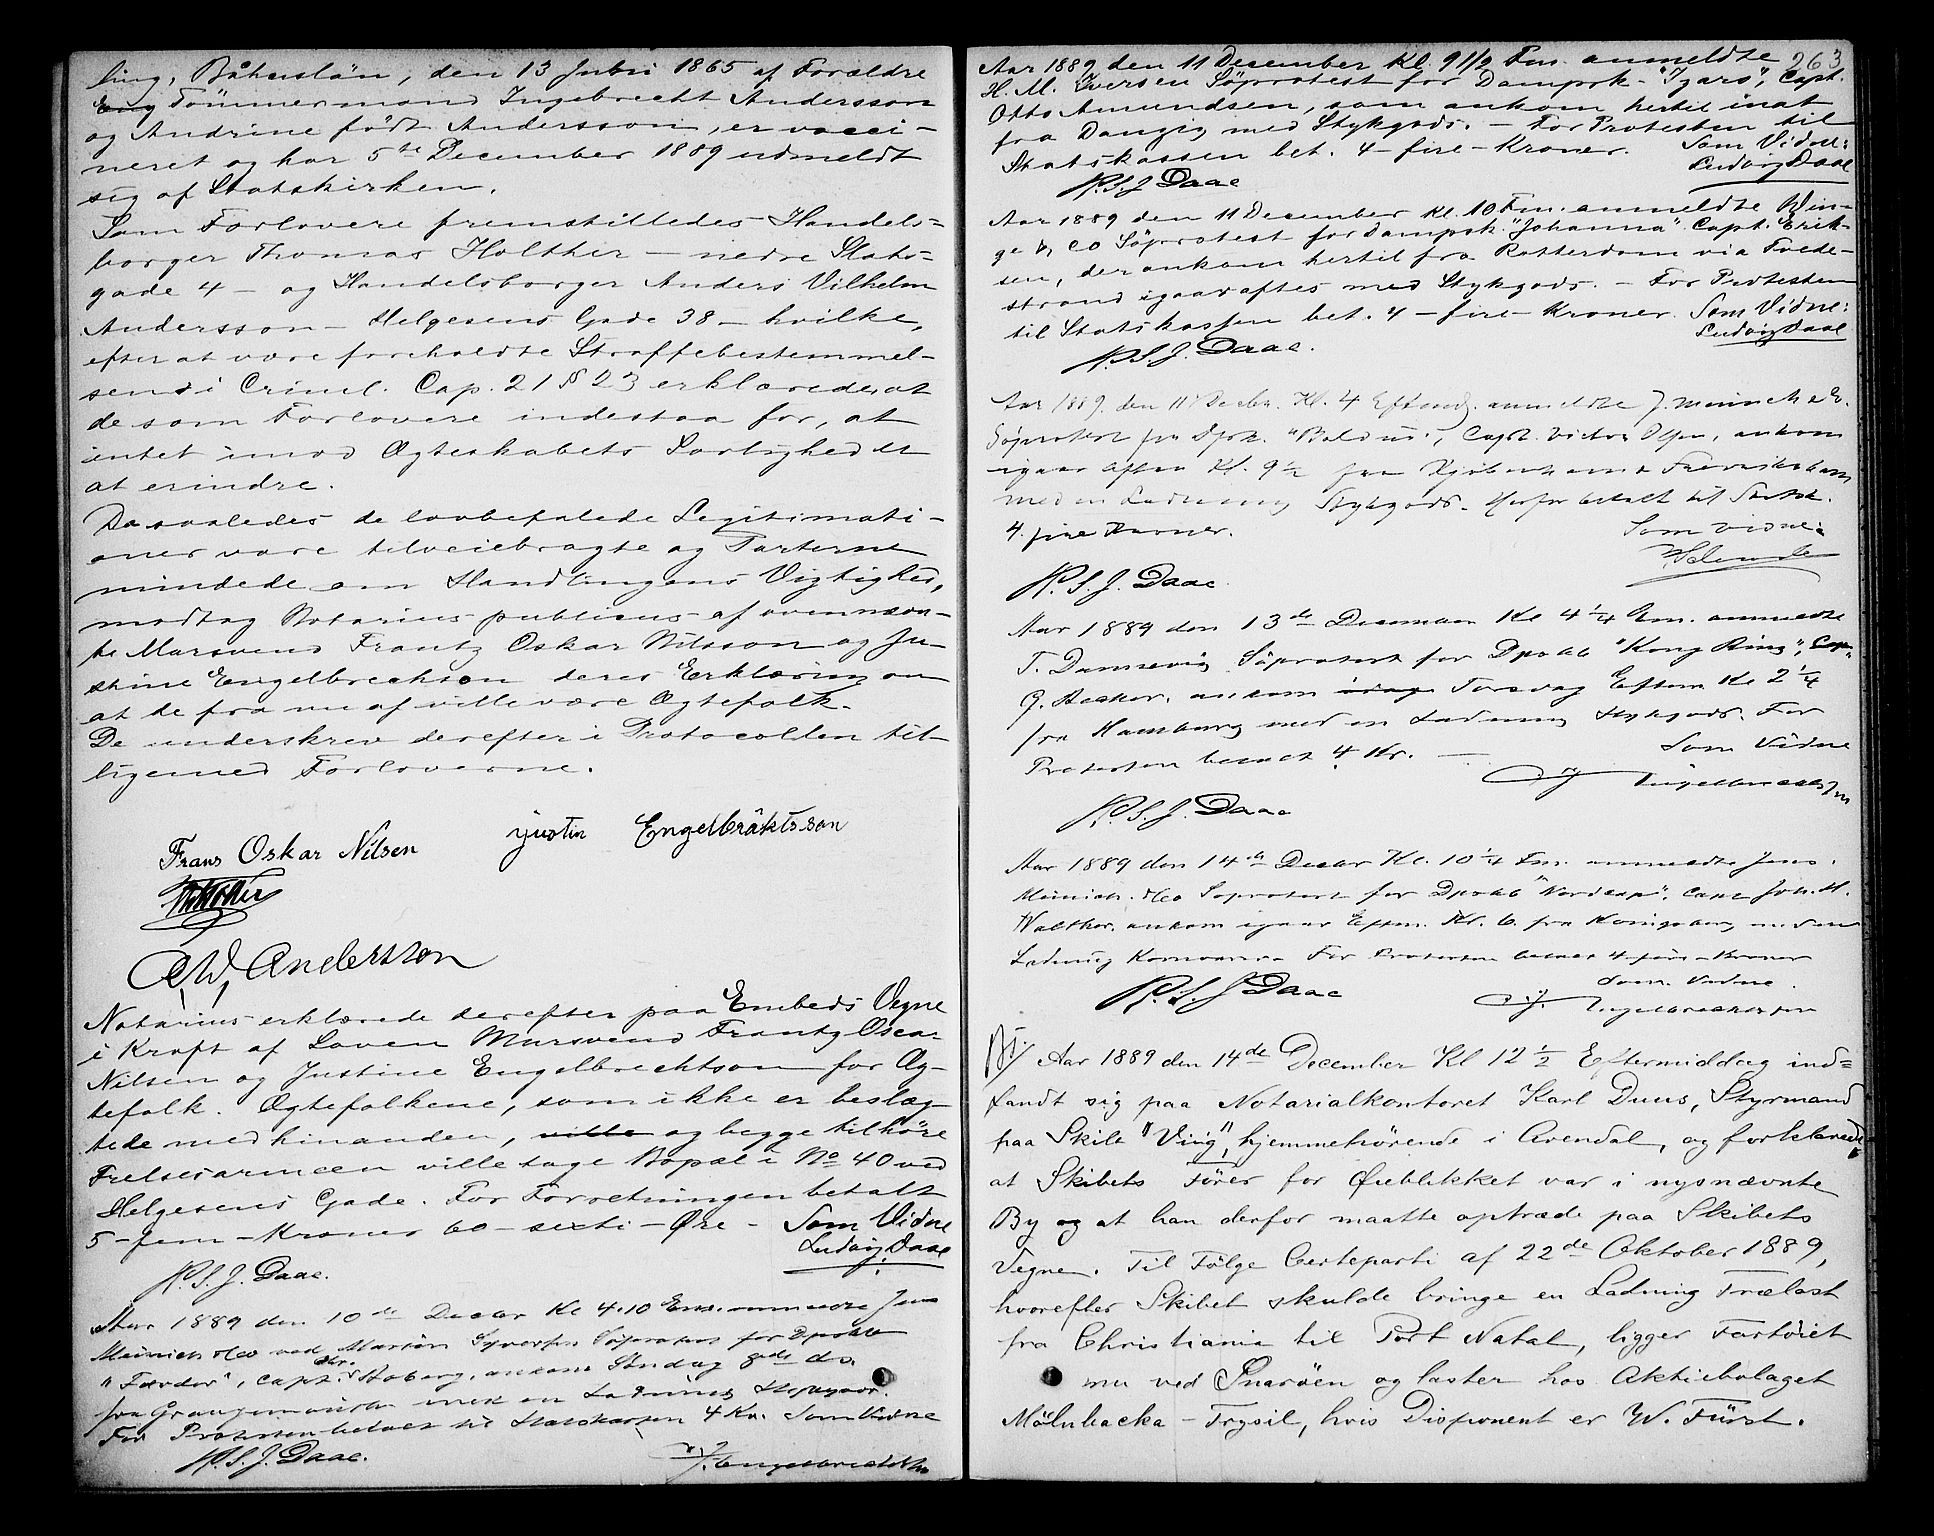 ling, Båhuslän, den 13 Juni 1865 af Forældre
Eng Tömmermand Ingebrecht Andersson
og Andrine født Andersson, er vacci-
neret og har 5te December 1889 udmeldt
sig af Statskirken.
Som Forlovere fremstilledes Handels-
borger Thomas Holther - nedre Slots-
gade 4 - og Handelsborger Anders Vilhelm
Andersson - Helgesens Gade 38 - hvilke,
efter at være foreholdte Straffebestemmel-
sen i Criml. Cap. 21 § 23 erklærede, at
de som Forlovere indestaa for, at
intet imod Ægteskabets Lovlighed er
at erindre.
Da saaledes de lovbefalede Legitimati-
oner vare tilveiebragte og Parterne
mindede om Handlingens Vigtighed,
modtog Notarius publicus af ovennævn-
te Mursvend Frantz Oskar Nilsson og Ju-
stine Engelbrechtson deres Erklæring om
at de fra nu af ville være Ægtefolk.
De underskrev derefter i Protocollen til-
ligemed Forloverne.
Frans Oskar Nilsen justin Engelbräktsson
Th Holther
A. W. Andersson
Notarius erklærede derefter paa Embeds Vegne
i Kraft af Loven Mursvend Frantz Oscar
Nilsen og Justine Engelbrechtson for Æg-
tefolk. Ægtefolkene, som ikke er beslæg-
tede med hinanden, ville og begge tilhöre
Frelserarmeen ville tage Bopæl i No 40 ved
Helgesens Gade. For Forretningen betalt
5 - fem - Kroner 60 - sexti - Øre - Som Vidne
Ludvig Daae
N. S. J. Daae.
Aar 1889 den 10de Decbr Kl 4.10 Em. anmeldte Jens
Meinich & Co ved Martin Syversen Söprotest for Dpskb
"Færder", Capt. Chr. Aaberg, ankom Søndag 8de ds.
fra Grangemouth med en Ladning Stykgods.
For Protesten betalt til Statskassen 4 Kr. Som Vidne
N. S. J. Daae. J. Engelbrechtsen
263
Aar 1889 den 11 December Kl. 9 1/2 Fm. anmeldte
H. M. Iversen Söprotest for Dampsk. "Tjars", Capt.
Otto Amundsen, som ankom hertil inat
fra Danzig med Stykgods. - For Protesten til
Statskassen bet. 4 - fire - Kroner. Som Vidne:
N. S. J. Daae Ludvig Daae
Aar 1889 den 11 December Kl. 10 Fm. anmeldte Win-
ge & Co Söprotest for Dampsk. "Johanna" Capt. Erik-
sen, der ankom hertil fra Rotterdam via Tvede-
strand igaaraftes med Stykgods. - For Protesten
til Statskassen bet. 4 - fire - Kroner. Som Vidne:
N. S. J. Daae. Ludvig Daae
Aar 1889. den 11' Decbr. Kl. 4 Eftmdg. anmeldte J. Meinich & Co.
Söprotest for Dpsk. "Baldur", Capt. Victor Olsen, ankom
igaar Aften Kl. 9 1/2 fra Kjøbenhavn & Frederikshavn
med en Ladning Stykgods. Herfor betalt til Statsk.
4. fire Kroner. Som Vidne:
N. S. J. Daae.
Aar 1889 den 13de December Kl 4 1/4 Em. anmeldte
T. Dannevig Söprotest for Dpskb "Kong Ring", Capt.
G. Aasker, ankom idag Torsdag Eftm Kl 2 1/4
fra Hamburg med en Ladning Stykgods. For
Protesten betalt 4 Kr. - Som Vidne
J. Engelbrechtsen
N. S. J. Daae
Aar 1889 den 14de Decbr Kl. 10 1/4 Fm. anmeldte Jens
Meinich & Co Söprotest for Dpskb "Nordcap", Capt Joh. H.
Walther, ankom igaar Eftm. Kl. 6. fra Königsberg med en
Ladning Kornvarer. For Protesten betalt 4 - fire - Kroner
Som Vidne
N. S. J. Daae J. Engelbrechtsen
Aar 1889 den 14de December Kl 12 1/2 Eftermiddag ind=
fandt sig paa Notarialkontoret Karl Duus, Styrmand
paa Skibet "Viig", hjemmehörende i Arendal, og forklarede,
at Skibets Förer for Øieblikket var i nysnævnte
By og at han derfor maatte optræde paa Skibets
Vegne. Til Fölge Certeparti af 22de Oktober 1889,
hvorefter Skibet skulde bringe en Ladning Trælast
fra Christiania til Port Natal, ligger Fartöiet
nu ved Snaröen og laster hos Aktiebolaget
Mölnbacka - Trysil, hvis Disponent er W. Fürst.